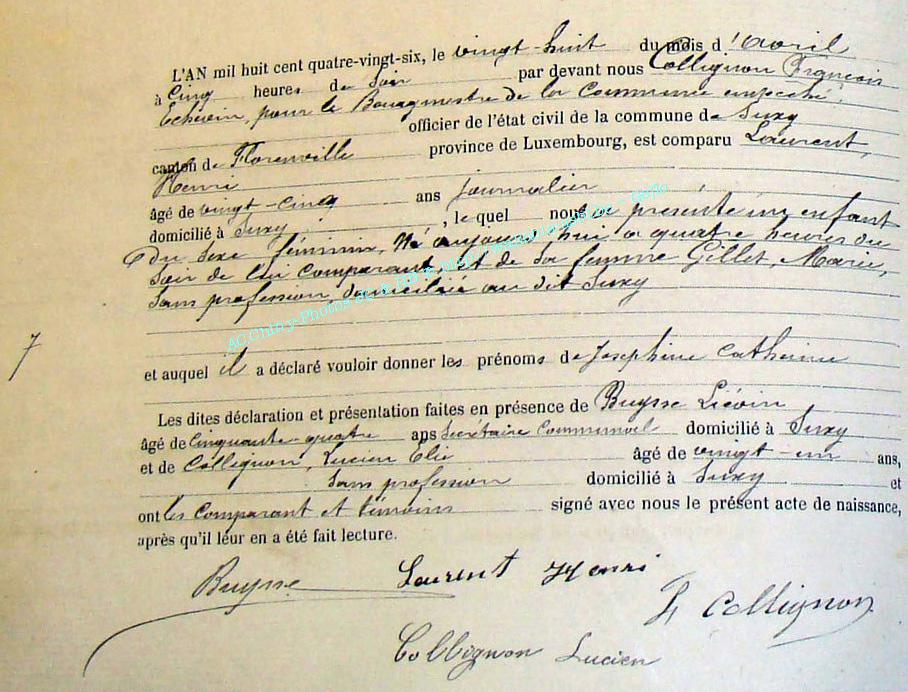 L'AN mil huit cent quatre-vingt-six, le vingt-huit du mois d'avril
à Cinq heures de Soir par devant nous Collignon François
Echevin, pour le Bourgmestre de la Commune empêché,
officier de l'état civil de la commune de Suxy
canton de Florenville province de Luxembourg, est comparu Laurent,
Henri
âgé de vingt-cinq ans journalier
domicilié à Suxy, lequel nous a présenté un enfant
du sexe féminin, né aujourd'hui a quatre heures du
soir de lui comparant, et de sa femme Gillet, Marie,
sans profession, domiciliée au dit Suxy
7
et auquel il a déclaré vouloir donner les prénoms de Josephine Catherine
Les dites déclaration et présentation faites en présence de Buysse Liévin
âgé de Cinquante-quatre ans Secrétaire Communal domicilié à Suxy
et de Collignon, Lucien Elie âgé de vingt-un ans,
sans profession domicilié à Suxy et
ont les comparant et témoins signé avec nous le présent acte de naissance,
après qu'il leur en a été fait lecture.
Buysse Laurent Henri
F Collignon
Collignon Lucien
AC Chiny-Photos